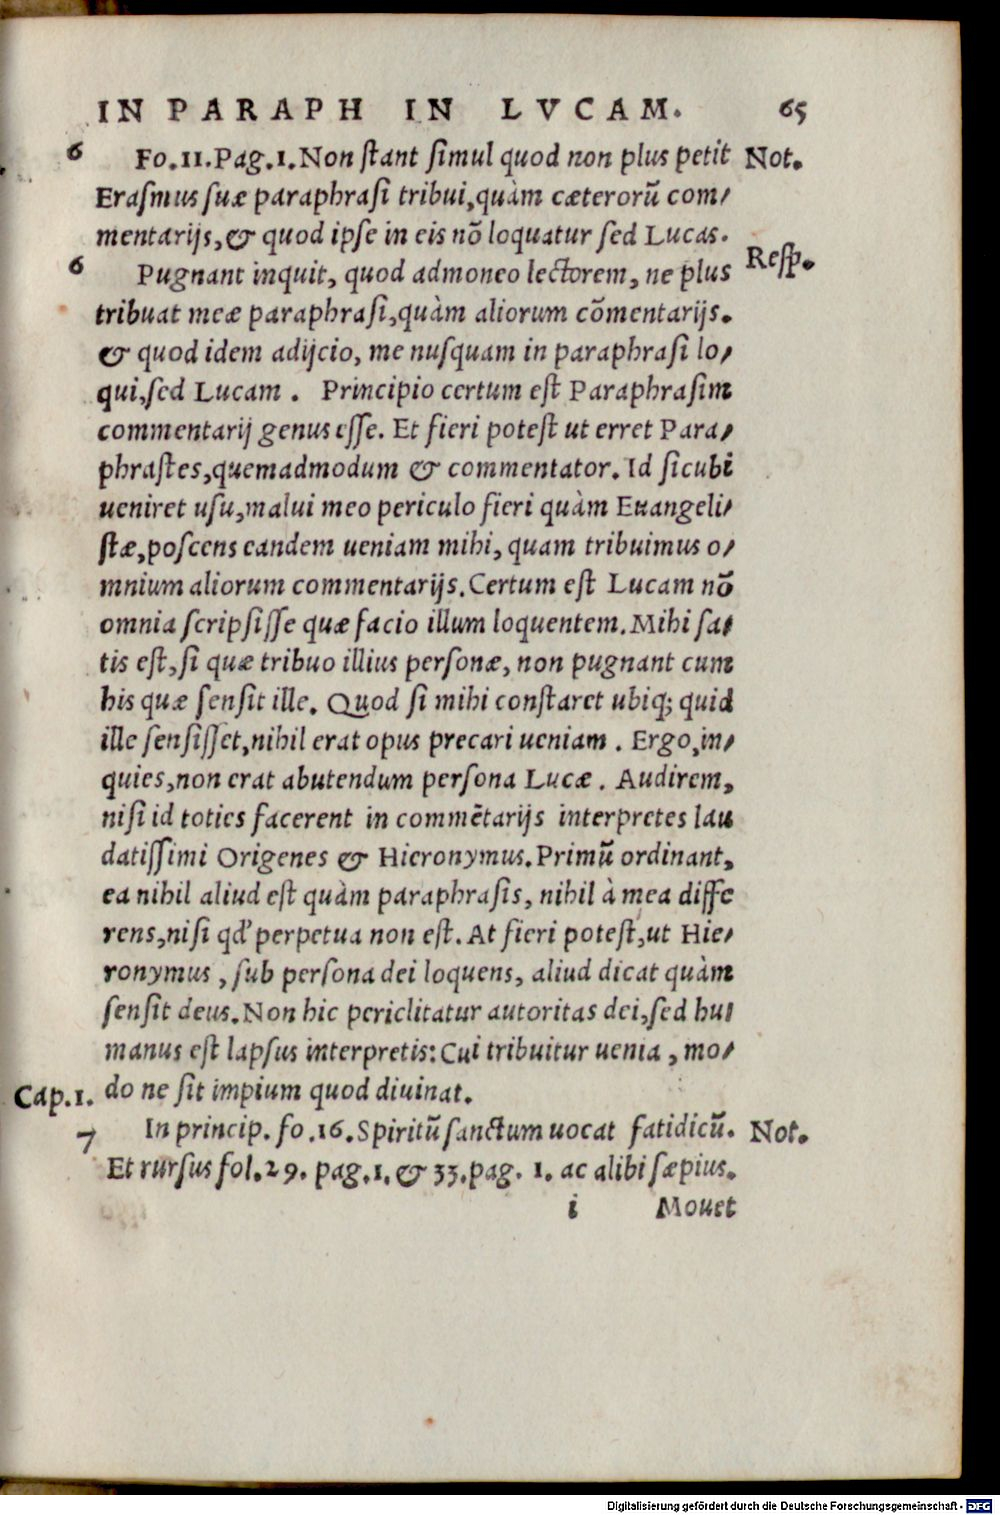 IN PARAPH IN LVCAM. 65
6 Fo.11.Pag.1.Non ſtant ſimul quod non plus petit Not.
Eraſmus ſuæ paraphraſi tribui,quàm cæterorũ com/
mentarijs,& quod ipſe in eis nõ loquatur ſed Lucas.
6 Pugnant inquit, quod admoneo lectorem, ne plus Reſp.
tribuat meæ paraphraſi,quàm aliorum cõmentarijs.
& quod idem adijcio, me nuſquam in paraphraſi lo/
qui,ſed Lucam . Principio certum eſt Paraphraſim
commentarij genus eſſe. Et fieri poteſt ut erret Para/
phraſtes,quemadmodum & commentator. Id ſicubi
ueniret uſu,malui meo periculo fieri quàm Euangeli/
ſtæ,poſcens eandem ueniam mihi, quam tribuimus o/
mnium aliorum commentarijs. Certum eſt Lucam nõ
omnia ſcripſiſſe quæ facio illum loquentem. Mihi ſa/
tis eſt,ſi quæ tribuo illius perſonæ, non pugnant cum
his quæ ſenſit ille. Quod ſi mihi conſtaret ubiq; quid
ille ſenſiſſet,nihil erat opus precari ueniam . Ergo,in/
quies,non erat abutendum perſona Lucæ . Audirem,
niſi id toties facerent in commẽtarijs interpretes lau
datiſſimi Origenes & Hieronymus. Primũ ordinant,
ea nihil aliud eſt quàm paraphraſis, nihil à mea diffe
rens,niſi qd' perpetua non eſt. At fieri poteſt,ut Hie/
ronymus , ſub perſona dei loquens, aliud dicat quàm
ſenſit deus. Non hic periclitatur autoritas dei,ſed hu/
manus eſt lapſus interpretis: Cui tribuitur uenia , mo/
Cap.1. do ne ſit impium quod diuinat.
7 In princip. fo.16. Spiritũ ſanctum uocat fatidicũ. Not.
Et rurſus fol.29. pag.1.& 33.pag. 1. ac alibi ſæpius.
i Mouet
Digitalisierung gefördert durch die Deutsche Forschungsgemeinschaft - DFG